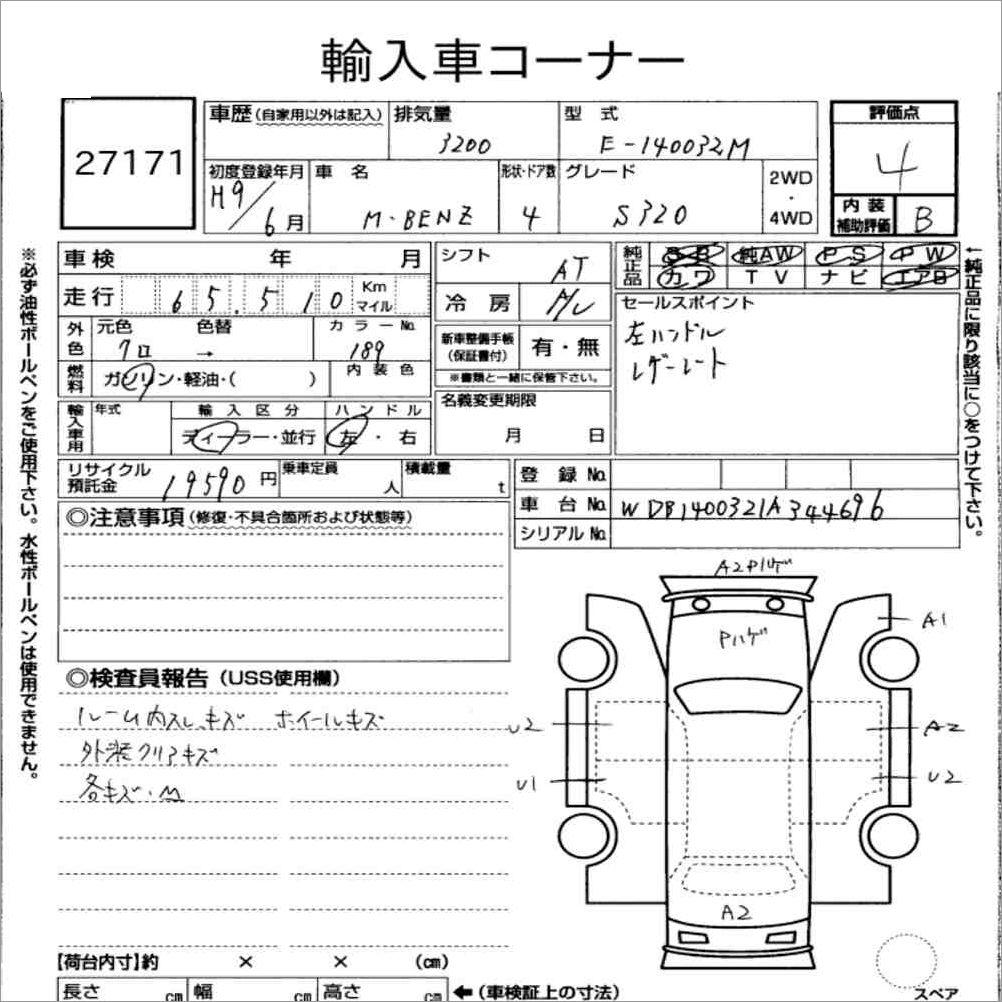 輸入車コーナー
27171
車歴(自家用以外は記入) 排気量 3200 型式 E-140032M 評価点 4
初度登録年月 H9/6月 車名 M・BENZ 形状・ドア数 4 グレード S320 2WD・4WD 内装補助評価 B
車検 年 月 シフト AT 純正品 SR 純AW PS PW
カワ TV ナビ エアB
走行 65,510 Km マイル 冷房 セールスポイント
左ハンドル
レザーシート
外色 元色 クロ 色替 → カラーNo. 189
新車整備手帳(保証書付) 有・無
※書類と一緒に保管下さい。
燃料 ガソリン・軽油・( ) 内装色
名義変更期限 月 日
輸入車用 年式 輸入区分 ディーラー・並行 ハンドル 左・右
リサイクル預託金 19590円 乗車定員 人 積載量 t
登録No.
車台No. WDB1400321A344696
シリアルNo.
◎注意事項(修復・不具合箇所および状態等)
◎検査員報告(USS使用欄)
ルーム内スレキズ ホイールキズ
外装クリアキズ
各キズ・凹
A2Pハゲ
Pハゲ
A1
U2
A2
U1
U2
A2
【荷台内寸】約 × × (cm)
長さ cm 幅 cm 高さ cm ←(車検証上の寸法)
スペア
※必ず油性ボールペンをご使用下さい。水性ボールペンは使用できません。
←純正品に限り該当に○をつけて下さい。